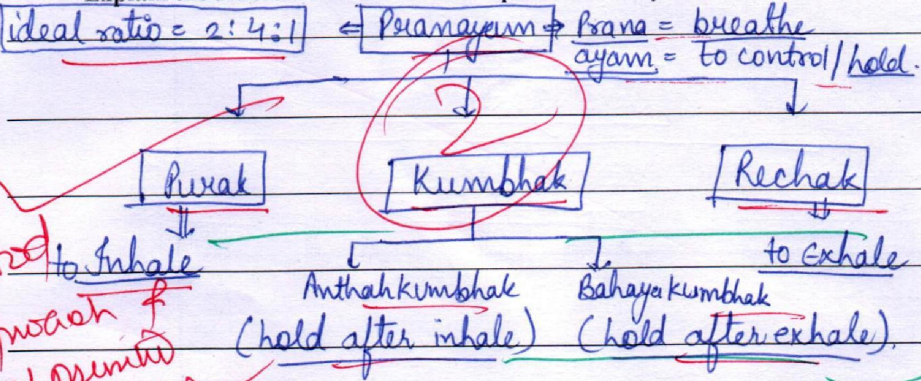 ideal ratio = 2:4:1 ⇐ Pranayam ⇒ Prana = breathe
ayam = to control/hold.
2
Purak Kumbhak Rechak
to Inhale to Exhale
Anthahkumbhak Bahayakumbhak
(hold after inhale) (hold after exhale).